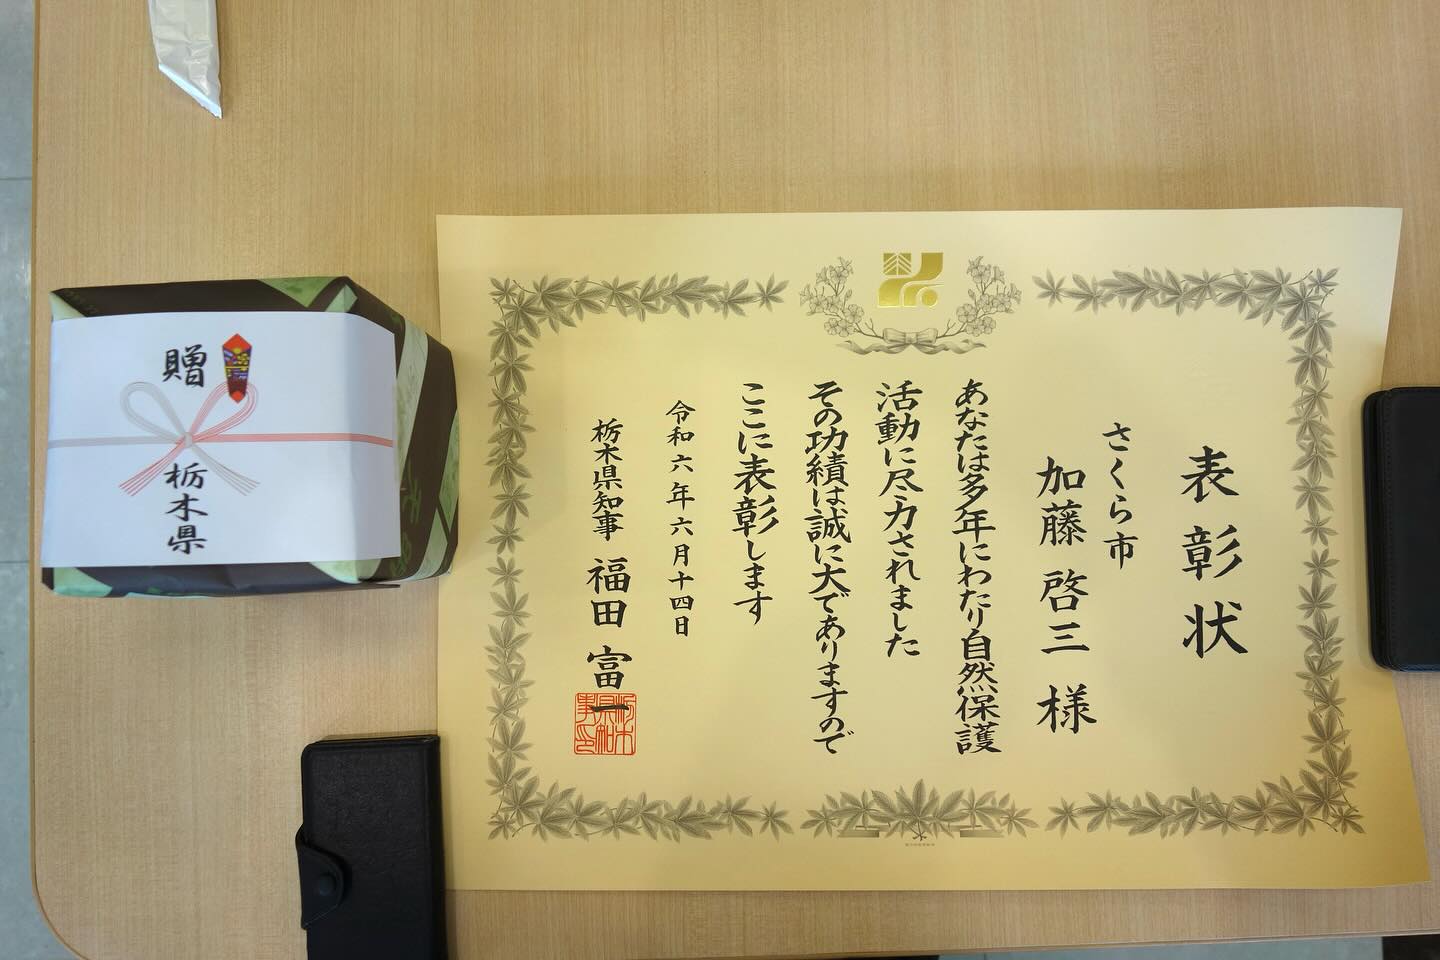 表彰状
さくら市
加藤啓三様
あなたは多年にわたり自然保護
活動に尽力されました
その功績は誠に大でありますので
ここに表彰します
令和六年六月十四日
栃木県知事 福田富一
栃木県知事之印
贈
栃木県